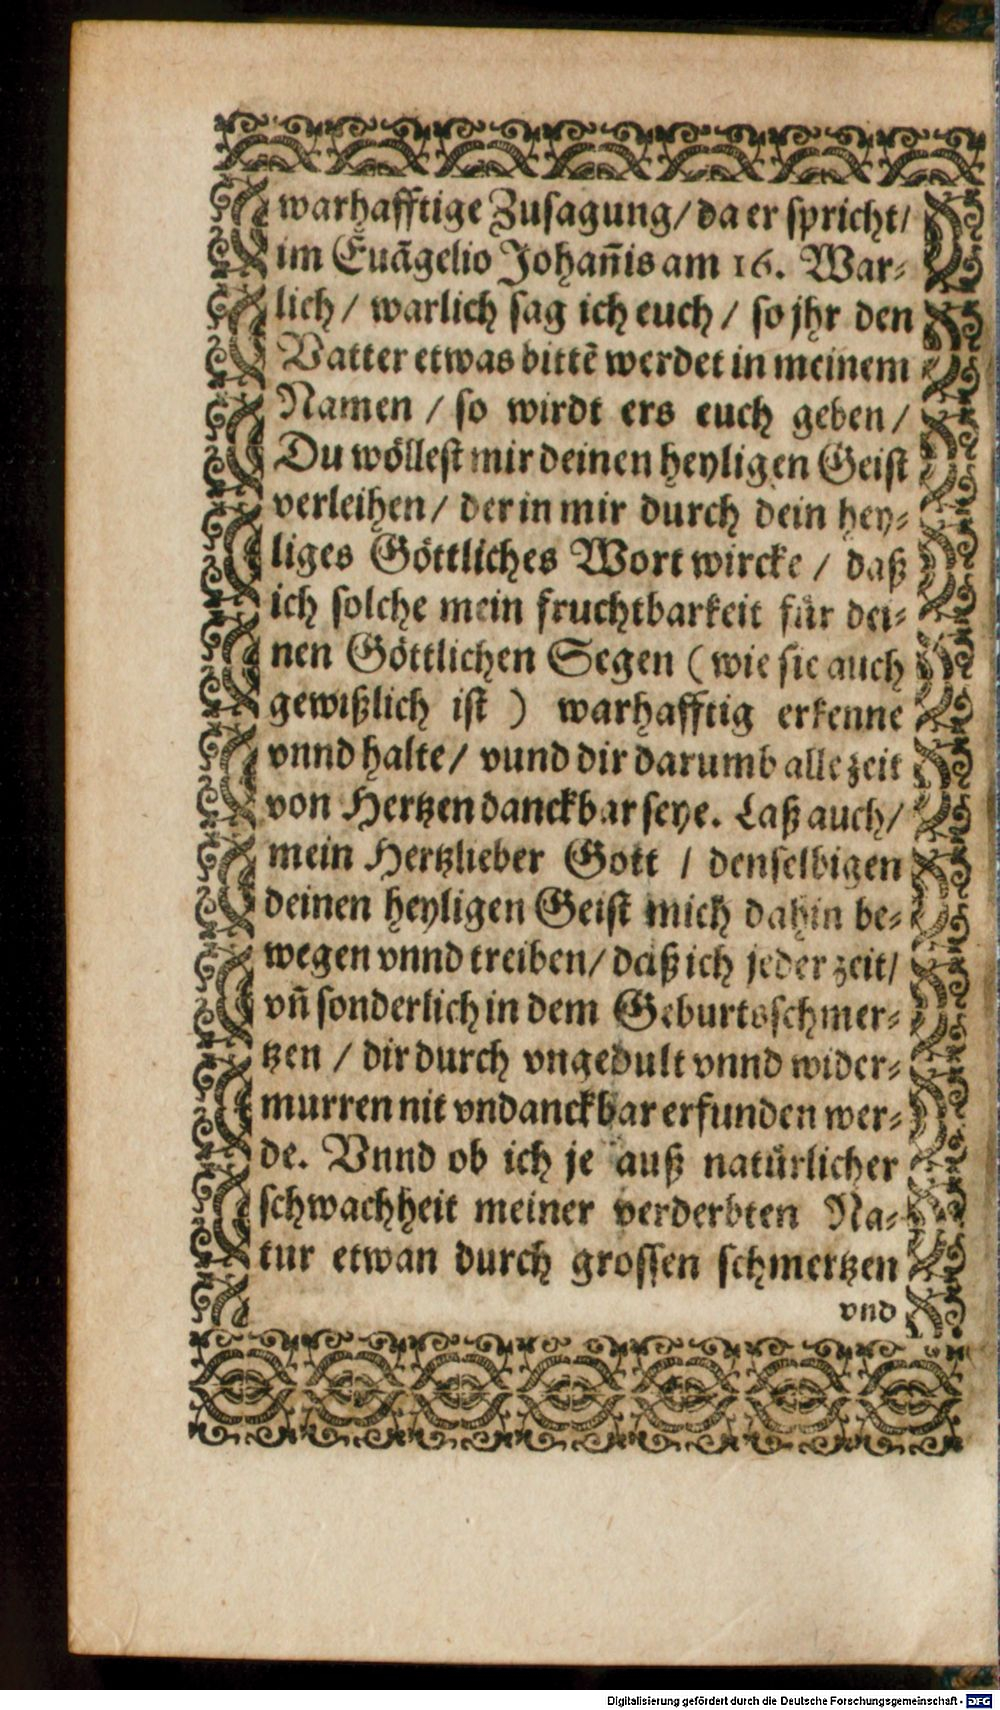 warhafftige Zusagung/ da er spricht/
im Euãgelio Johañis am 16. War⸗
lich / warlich sag ich euch / so jhr den
Vatter etwas bittẽ werdet in meinem
Namen / so wirdt ers euch geben /
Du wöllest mir deinen heyligen Geist
verleihen / der in mir durch dein hey⸗
liges Göttliches Wort wircke / daß
ich solche mein fruchtbarkeit für dei⸗
nen Göttlichen Segen ( wie sie auch
gewißlich ist ) warhafftig erkenne
vnnd halte / vnnd dir darumb alle zeit
von Hertzen danckbar seye. Laß auch/
mein Hertzlieber Gott / denselbigen
deinen heyligen Geist mich dahin be⸗
wegen vnnd treiben/ daß ich jeder zeit/
vñ sonderlich in dem Geburtsschmer⸗
tzen / dir durch vngedult vnnd wider⸗
murren nit vndanckbar erfunden wer⸗
de. Vnnd ob ich je auß natürlicher
schwachheit meiner verderbten Na⸗
tur etwan durch grossen schmertzen
vnd
Digitalisierung gefördert durch die Deutsche Forschungsgemeinschaft - DFG